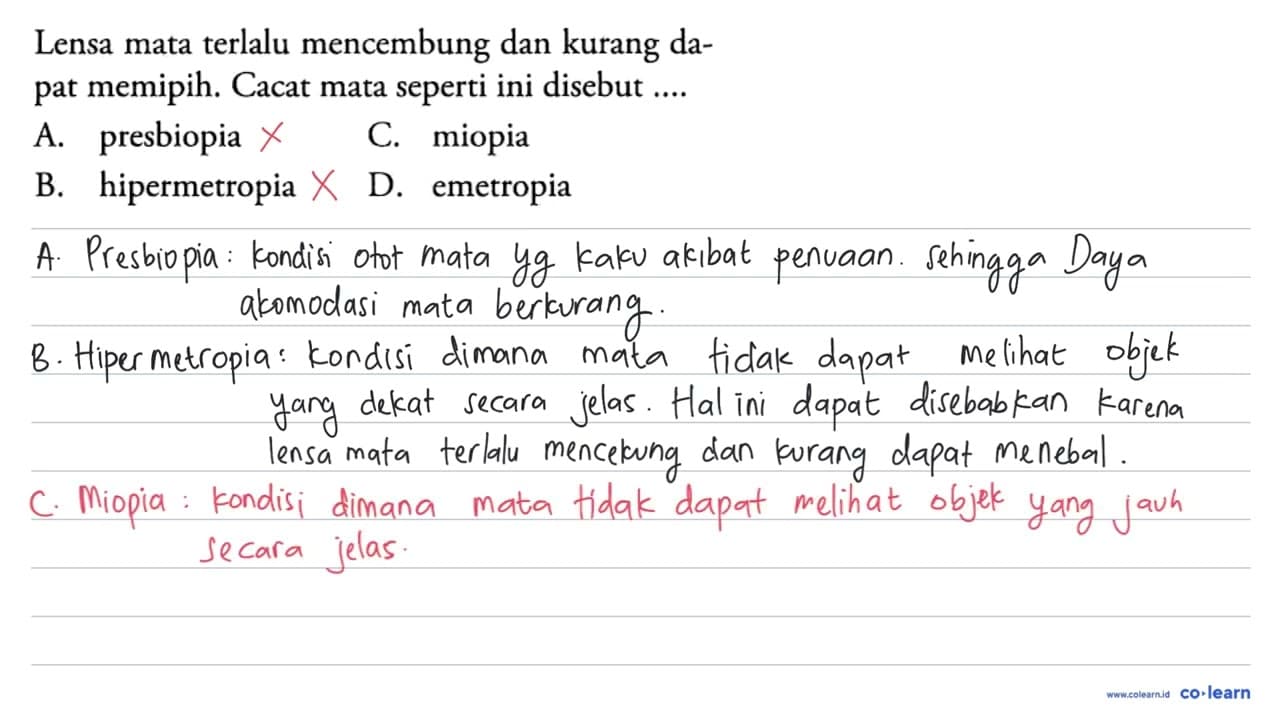 Lensa mata terlalu mencembung dan kurang da-
pat memipih. Cacat mata seperti ini disebut ....
A. presbiopia X C. miopia
B. hipermetropia X D. emetropia
A. Presbiopia: kondisi otot mata yg kaku akibat penuaan. sehingga Daya
akomodasi mata berkurang.
B. Hipermetropia: kondisi dimana mata tidak dapat melihat objek
yang dekat secara jelas. Hal ini dapat disebabkan karena
lensa mata terlalu mencekung dan kurang dapat menebal.
C. Miopia : kondisi dimana mata tidak dapat melihat objek yang jauh
secara jelas.
www.colearn.id co·learn